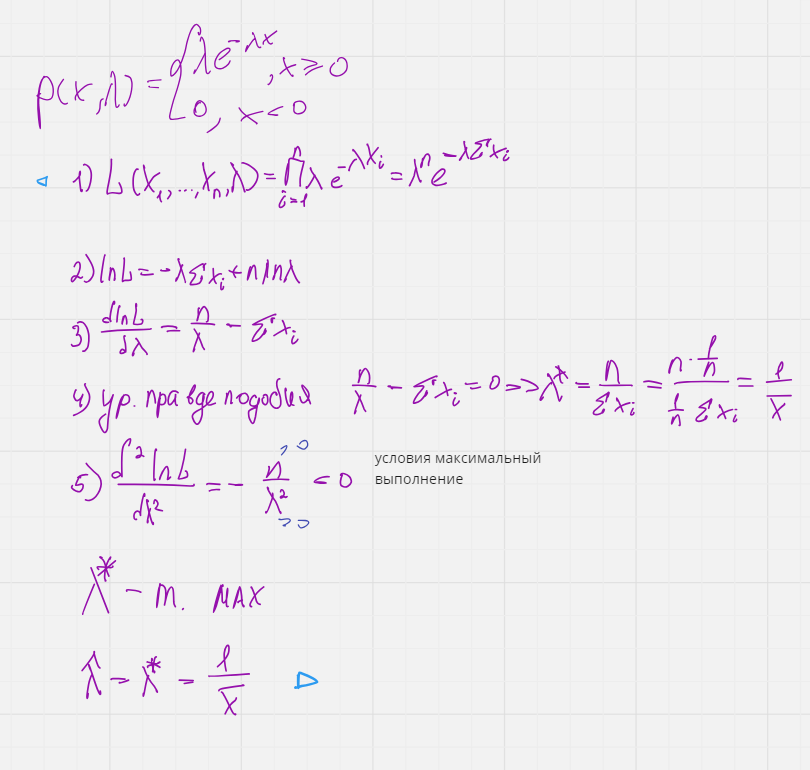 p(x,λ) = { λe^{-λx}, x ≥ 0
0, x < 0
1) L(x₁,...,xₙ,λ) = ∏_{i=1}^{n} λ e^{-λx_i} = λⁿ e^{-λΣx_i}
2) lnL = -λΣx_i + n lnλ
3) dlnL/dλ = n/λ - Σx_i
4) ур. правдеподобия n/λ - Σx_i = 0 => λ* = n/Σx_i = (n · 1/n)/(1/n Σx_i) = 1/x̅
5) d² lnL/dλ² = - n/λ² < 0 >0 >0 условия максимальный
выполнение
λ* - т. max
λ̂ = λ* = 1/x̅